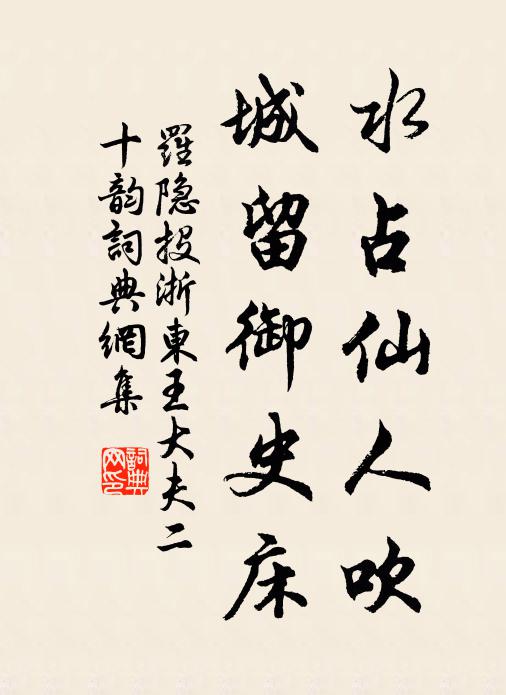 水占仙人吹
城留御史床
羅隐投浙東王大夫二
十韵詞典網集
詞典网印